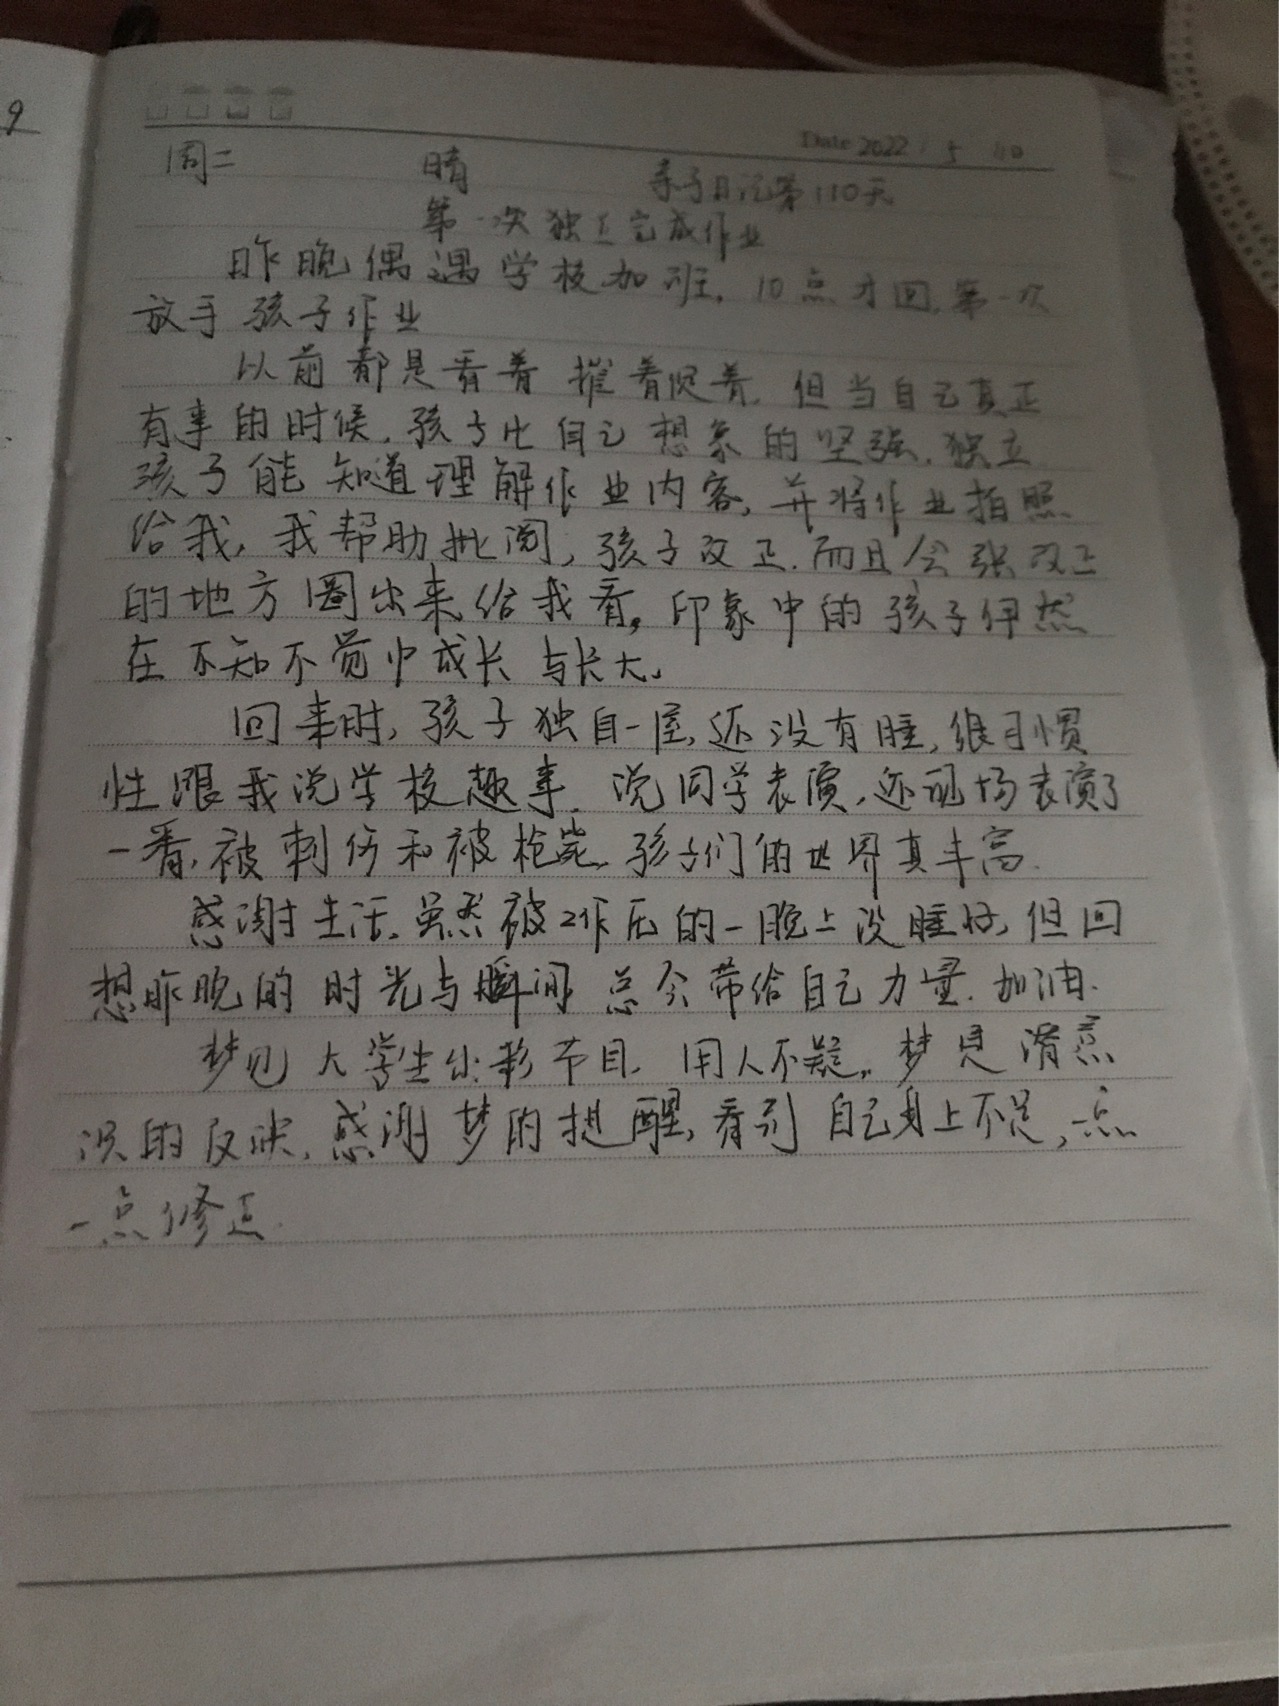 9
Date 2022 / 5 / 10
周二 晴 亲子日记第110天
第一次独立完成作业
昨晚偶遇学校加班，10点才回，第一次
放手孩子作业
以前都是看着催着促着，但当自己真正
有事的时候，孩子比自己想象的坚强，独立
孩子能知道理解作业内容，并将作业拍照
给我，我帮助批阅，孩子改正，而且会张改正
的地方圈出来给我看，印象中的孩子俨然
在不知不觉中成长与长大。
回来时，孩子独自一屋，还没有睡，很习惯
性跟我说学校趣事，说同学表演，还现场表演了
一番，被刺伤和被枪毙，孩子们的世界真丰富
感谢生活，虽然被工作压的一晚上没睡好，但回
想昨晚的时光与瞬间，总会带给自己力量，加油
梦见大学生出彩节目，用人不疑。梦是潜意
识的反映，感谢梦的提醒，看到自己身上不足，一点
一点修正